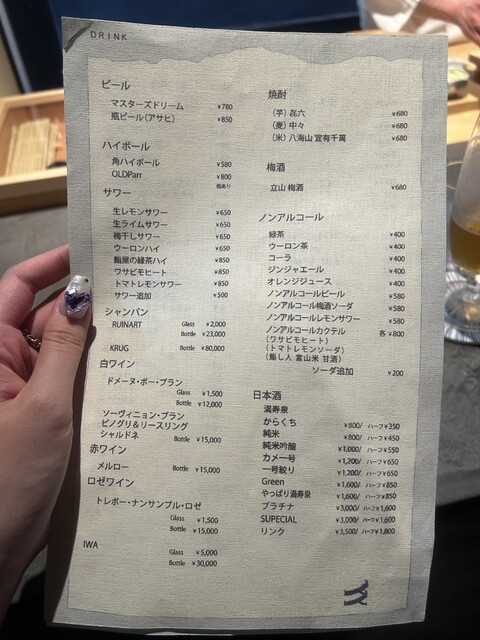 DRINK
ビール
マスターズドリーム ¥780
瓶ビール(アサヒ) ¥850
ハイボール
角ハイボール ¥580
OLDParr ¥800
他あり
サワー
生レモンサワー ¥650
生ライムサワー ¥650
梅干しサワー ¥650
ウーロンハイ ¥650
鮨屋の緑茶ハイ ¥850
ワサビモヒート ¥850
トマトレモンサワー ¥850
サワー追加 ¥500
シャンパン
RUINART Glass ¥2,000
Bottle ¥23,000
KRUG Bottle ¥80,000
白ワイン
ドメーヌ・ボー・ブラン
Glass ¥1,500
Bottle ¥12,000
ソーヴィニョン・ブラン
ピノグリ&リースリング
シャルドネ Bottle ¥15,000
赤ワイン
メルロー Bottle ¥15,000
ロゼワイン
トレボー・ナンサンブル・ロゼ
Glass ¥1,500
Bottle ¥15,000
IWA
Glass ¥5,000
Bottle ¥30,000
焼酎
(芋) 㐂六 ¥680
(麦) 中々 ¥680
(米) 八海山 宜有千萬 ¥680
梅酒
立山 梅酒 ¥680
ノンアルコール
緑茶 ¥400
ウーロン茶 ¥400
コーラ ¥400
ジンジャエール ¥400
オレンジジュース ¥400
ノンアルコールビール ¥580
ノンアルコール梅酒ソーダ ¥580
ノンアルコールレモンサワー ¥580
ノンアルコールカクテル 各 ¥800
(ワサビモヒート)
(トマトレモンソーダ)
(鮨し人 富山米 甘酒)
ソーダ追加 ¥200
日本酒
満寿泉
からくち ¥800/ ハーフ¥350
純米 ¥800/ ハーフ¥450
純米吟醸 ¥1,000/ ハーフ¥550
カメ一号 ¥1,200/ ハーフ¥650
一号絞り ¥1,200/ ハーフ¥650
Green ¥1,600/ ハーフ¥850
やっぱり満寿泉 ¥1,600/ ハーフ¥850
プラチナ ¥3,000/ ハーフ¥1,600
SUPECIAL ¥3,000/ ハーフ¥1,600
リンク ¥3,500/ ハーフ¥1,800